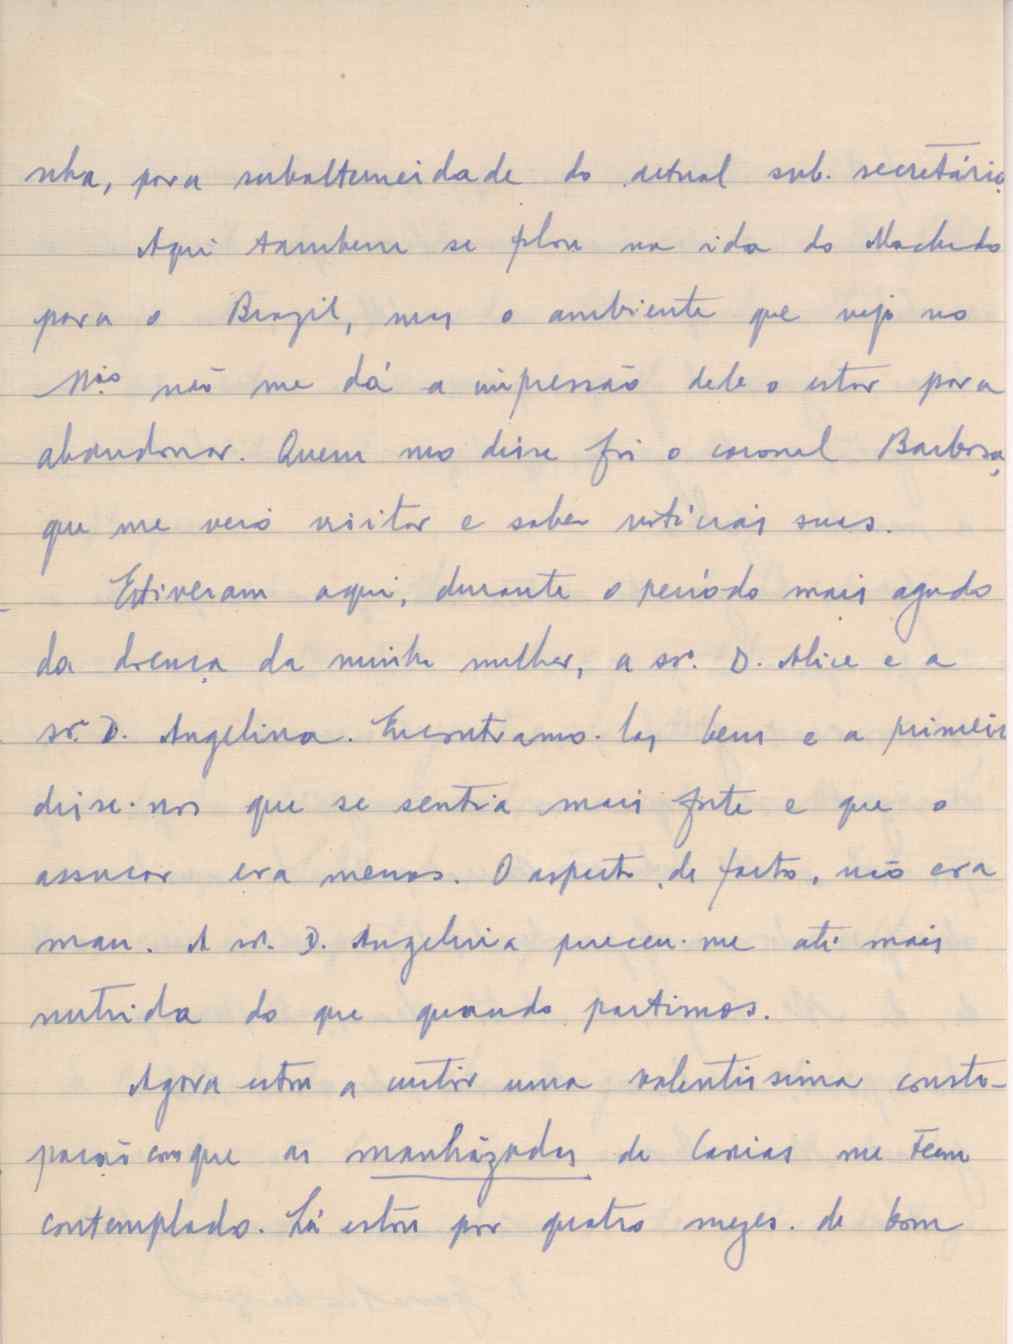 nha, para subalterneidade do actual sub. secretário.
Aqui tambem se falou na ida do Machado
para o Brazil, mas o ambiente que vejo no
não me dá a impressão dele o estar para
abandonar. Quem mo disse foi o coronel Barbosa,
que me veio visitar e saber noticias suas.
Estiveram aqui, durante o periodo mais agudo
da doença da minha mulher, a sr.ª D. Alice e a
sr.ª D. Angelina. Encontramo-las bem e a primeir
disse-nos que se sentia mais forte e que o
assucar era menos. O aspecto, de facto, não era
mau. A sr.ª D. Angelina pareceu-me até mais
nutrida do que quando partimos.
Agora estou a curtir uma valentissima consti-
pação com que as manhãzadas de Caxias me teem
contemplado. Lá estou por quatro mezes. de bom